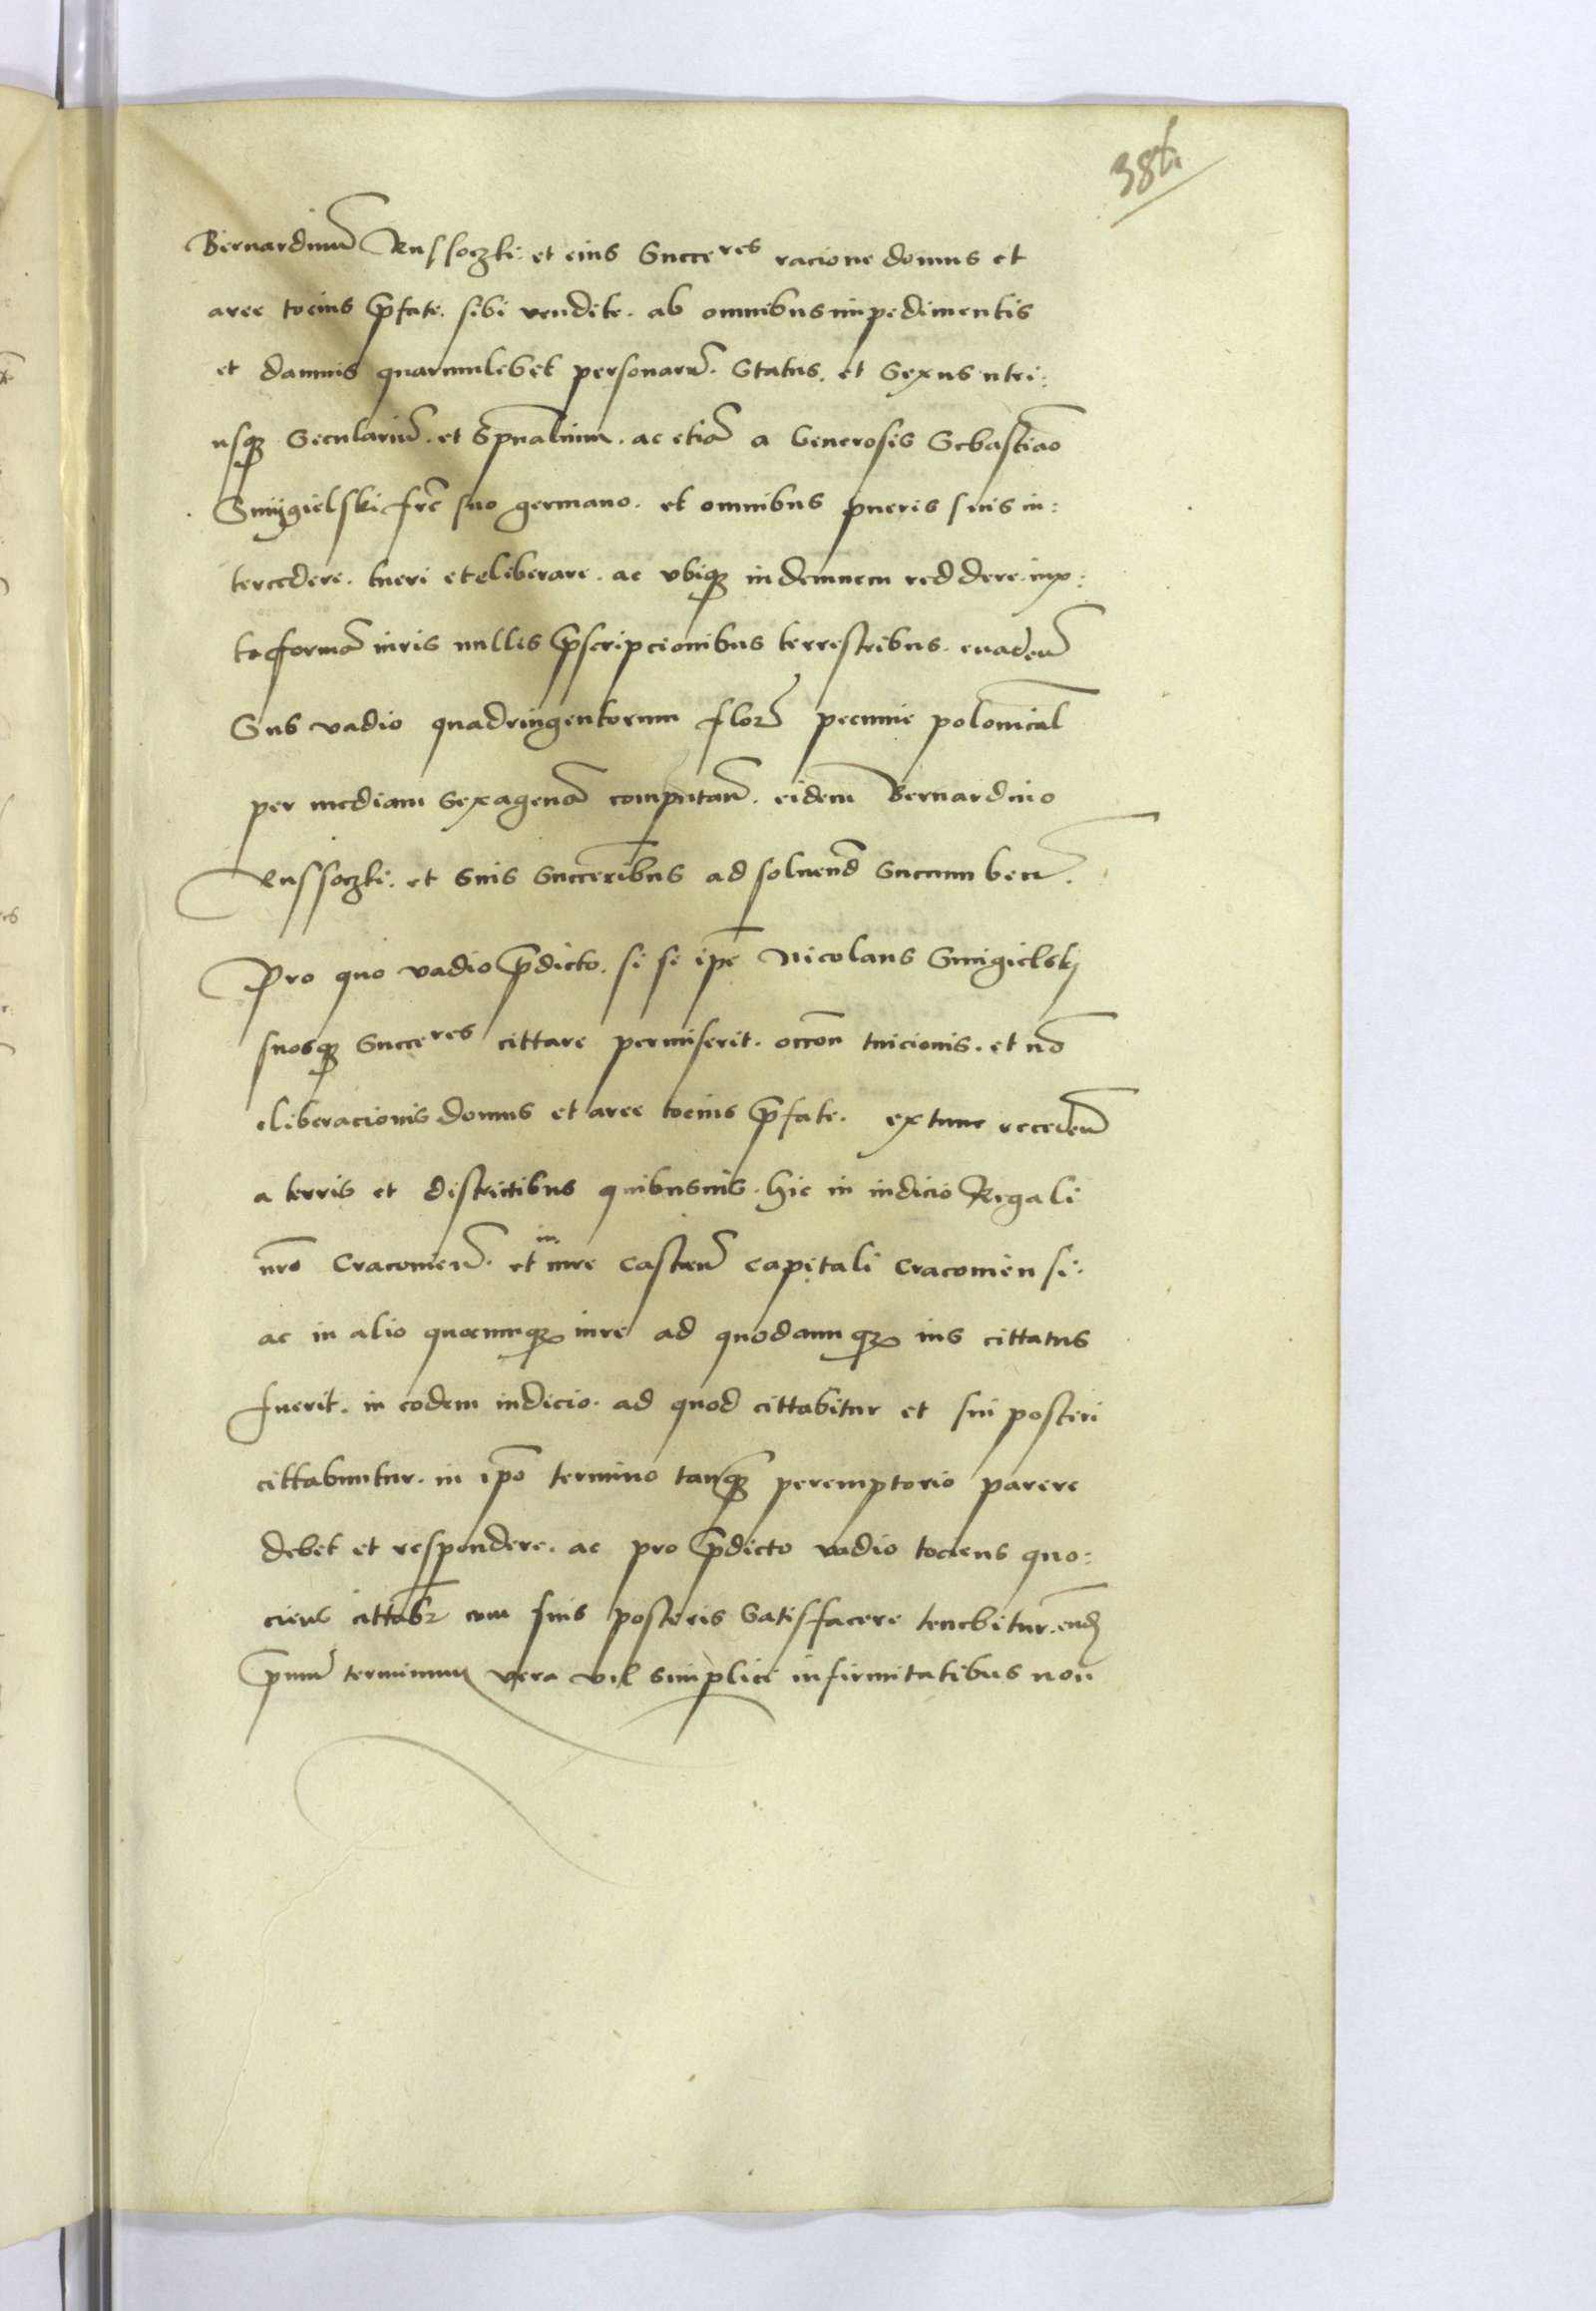 384
Bernardinu Russoczki. et eius Succeres racione domus et
aree tocius pfate. sibi vendite. ab omnibus impedimentis
et damnis quarumlibet personaru. Status. et Sexus utri:
usq Seculariu. et Spualium. ac etia a Generosis Sebastiao
Smijgielski fre suo germano. et omnibus pueris suis in:
tercedere. tueri et eliberare. ac vbiq indemnem reddere. iux:
ta forma iuris nullis pscripcionibus terrestribus. euaden
Sub vadio quadringentorum flor pecunie polonical
per mediam Sexagena computan. eidem Bernardino
Russoczki. et Suis Succeribus ad soluend Succumben.
Pro quo vadio pdicto. si se ipe Nicolaus Smigielskj
suosq Succeres cittare permiserit. occon tuicionis. et no
eliberacionis domus et aree tocius pfate. ex tunc receden
a terris et districtibus quibusuis. hic in iudicio Regali
nro Cracouien. et in iure Castren capitali Cracouiensi.
ac in alio quocunq iure ad quodcunq ius cittatus
fuerit. in eodem iudicio. ad quod cittabitur et sui posteri
cittabuntur. in ipo termino tanq peremptorio parere
debet et respondere. ac pro pdicto vadio tociens quo:
ciens cittabr cum suis posteris Satisfacere tenebitur. eund
pmu terminum vera vel simplici infirmitatibus non